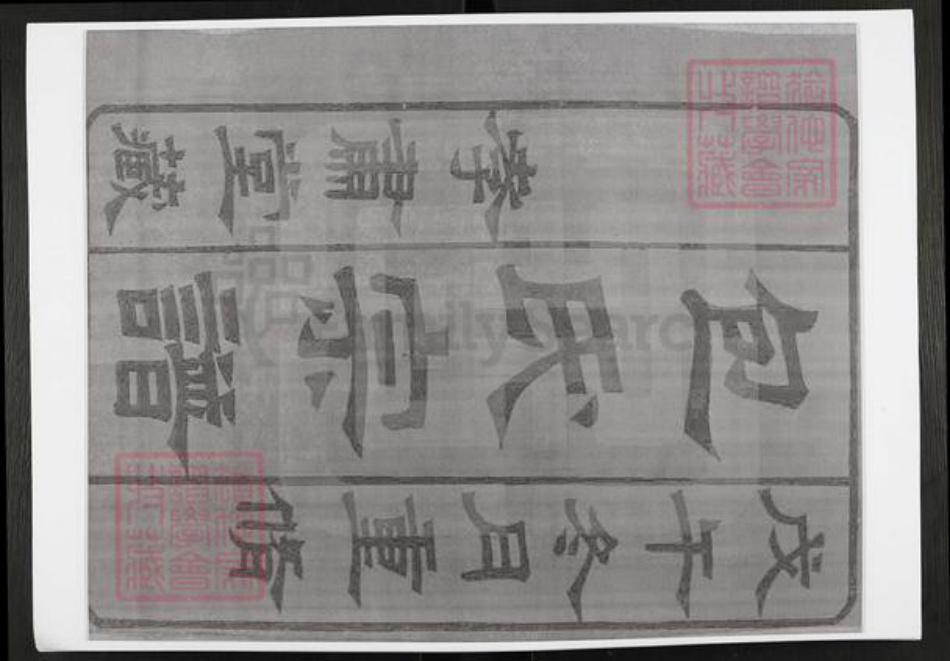 戊午冬月重脩
包氏宗譜
孝肅堂藏
家
譜學會
收藏
家
譜學會
收藏
FamilySearch